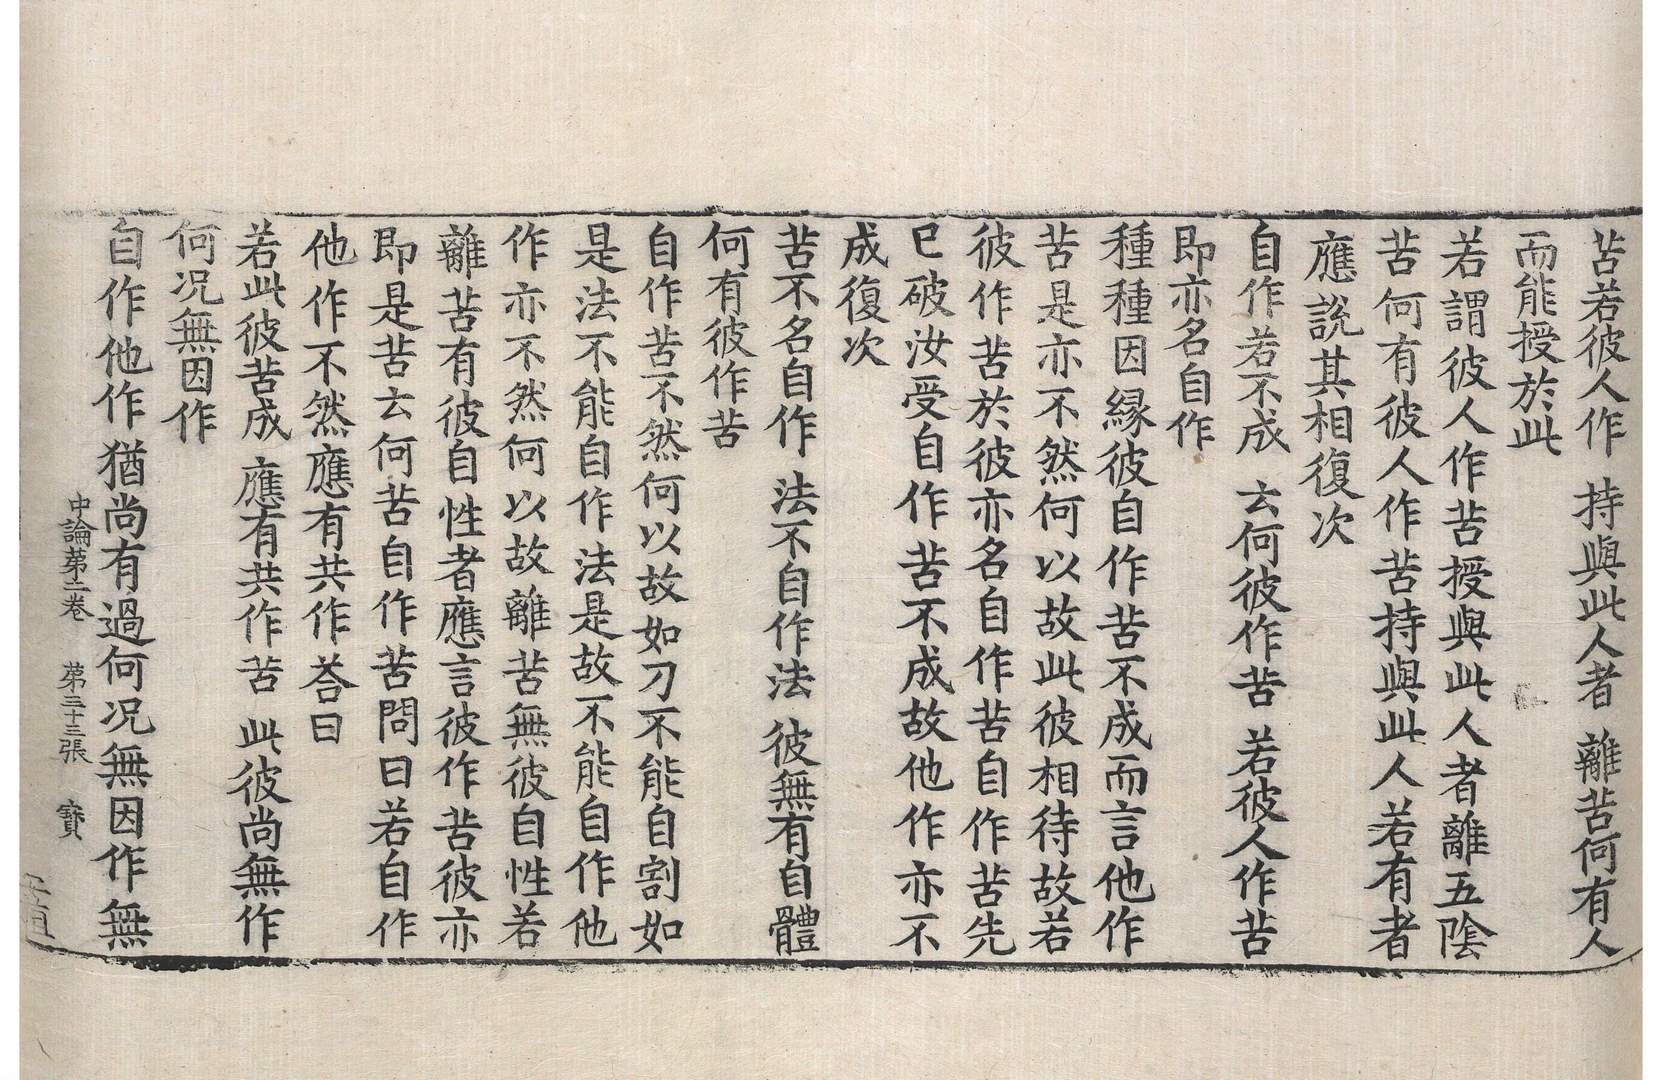 苦若彼人作　持與此人者　離苦何有人
而能授於此
若謂彼人作苦授與此人者離五陰
苦何有彼人作苦持與此人若有者
應說其相復次
自作若不成　云何彼作苦　若彼人作苦
即亦名自作
種種因緣彼自作苦不成而言他作
苦是亦不然何以故此彼相待故若
彼作苦於彼亦名自作苦自作苦先
已破汝受自作苦不成故他作亦不
成復次
苦不名自作　法不自作法　彼無有自體
何有彼作苦
自作苦不然何以故如刀不能自割如
是法不能自作法是故不能自作他
作亦不然何以故離苦無彼自性若
離苦有彼自性者應言彼作苦彼亦
即是苦云何苦自作苦問曰若自作
他作不然應有共作荅曰
若此彼苦成　應有共作苦　此彼尚無作
何況無因作
自作他作猶尚有過何況無因作無
中論第二卷　第三十三張　寳